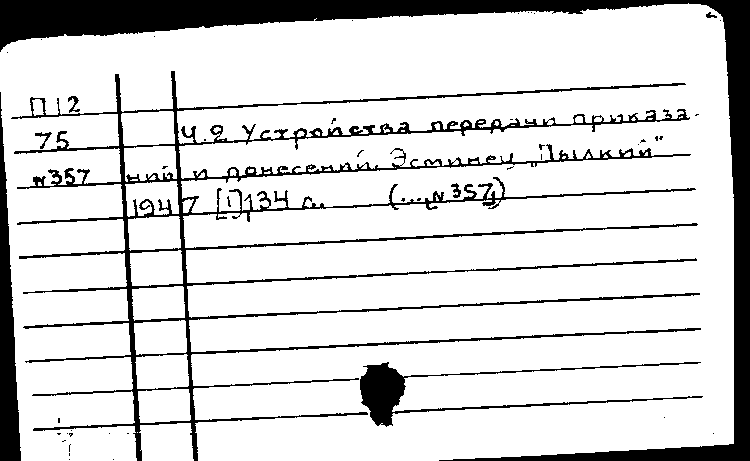 П12
75 Ч.2 Устройства передачи приказа-
№357 ний и донесений. Эсминец „Пылкий"
1947 [1], 134 с. (..., №357)